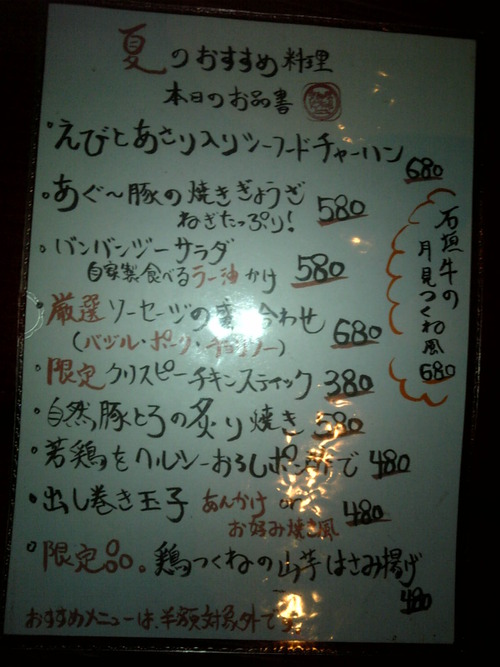 夏のおすすめ料理
本日のお品書
えびとあさり入りシーフードチャーハン
680
あぐ〜豚の焼きぎょうざ
ねぎたっぷり! 580
バンバンジーサラダ
自家製食べるラー油かけ 580
厳選ソーセージの 合わせ
(バジル・ポーク・チョリソー) 680
限定クリスピーチキンスティック 380
自然豚とろの炙り焼き 580
若鶏をヘルシーおろしポン酢で 480
出し巻き玉子 あんかけ or
お好み焼き風 480
限定品。鶏つくねの山芋はさみ揚げ
480
おすすめメニューは、半額対象外です
石垣牛の
月見つくね風
680